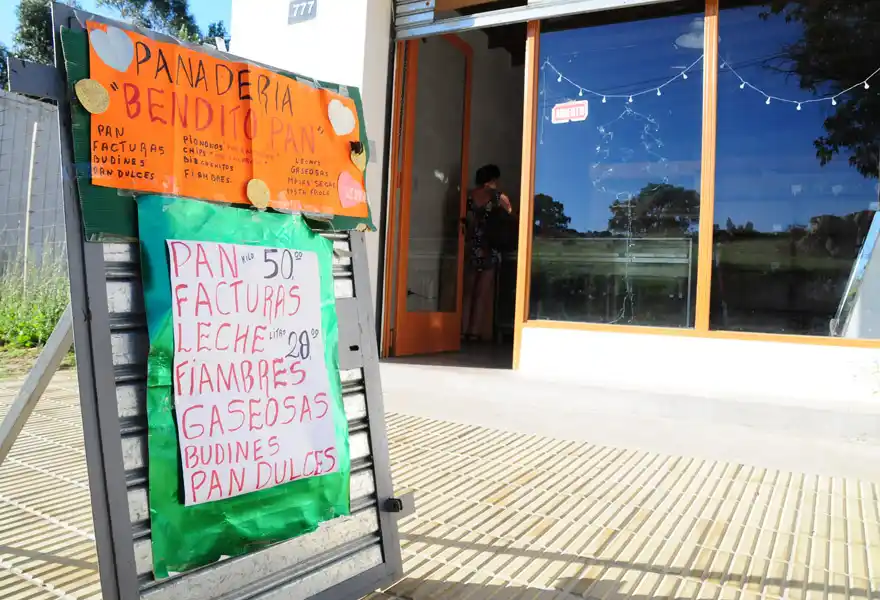 777
PANADERIA
"BENDITO PAN"
PAN
FACTURAS
BUDINES
PAN DULCES
PIONONOS
CHIPS
BIZCOCHITOS
FIAMBRES
LECHE
GASEOSAS
ABIERTO
PAN KILO 50.00
FACTURAS
LECHE LITRO 20.00
FIAMBRES
GASEOSAS
BUDINES
PAN DULCES